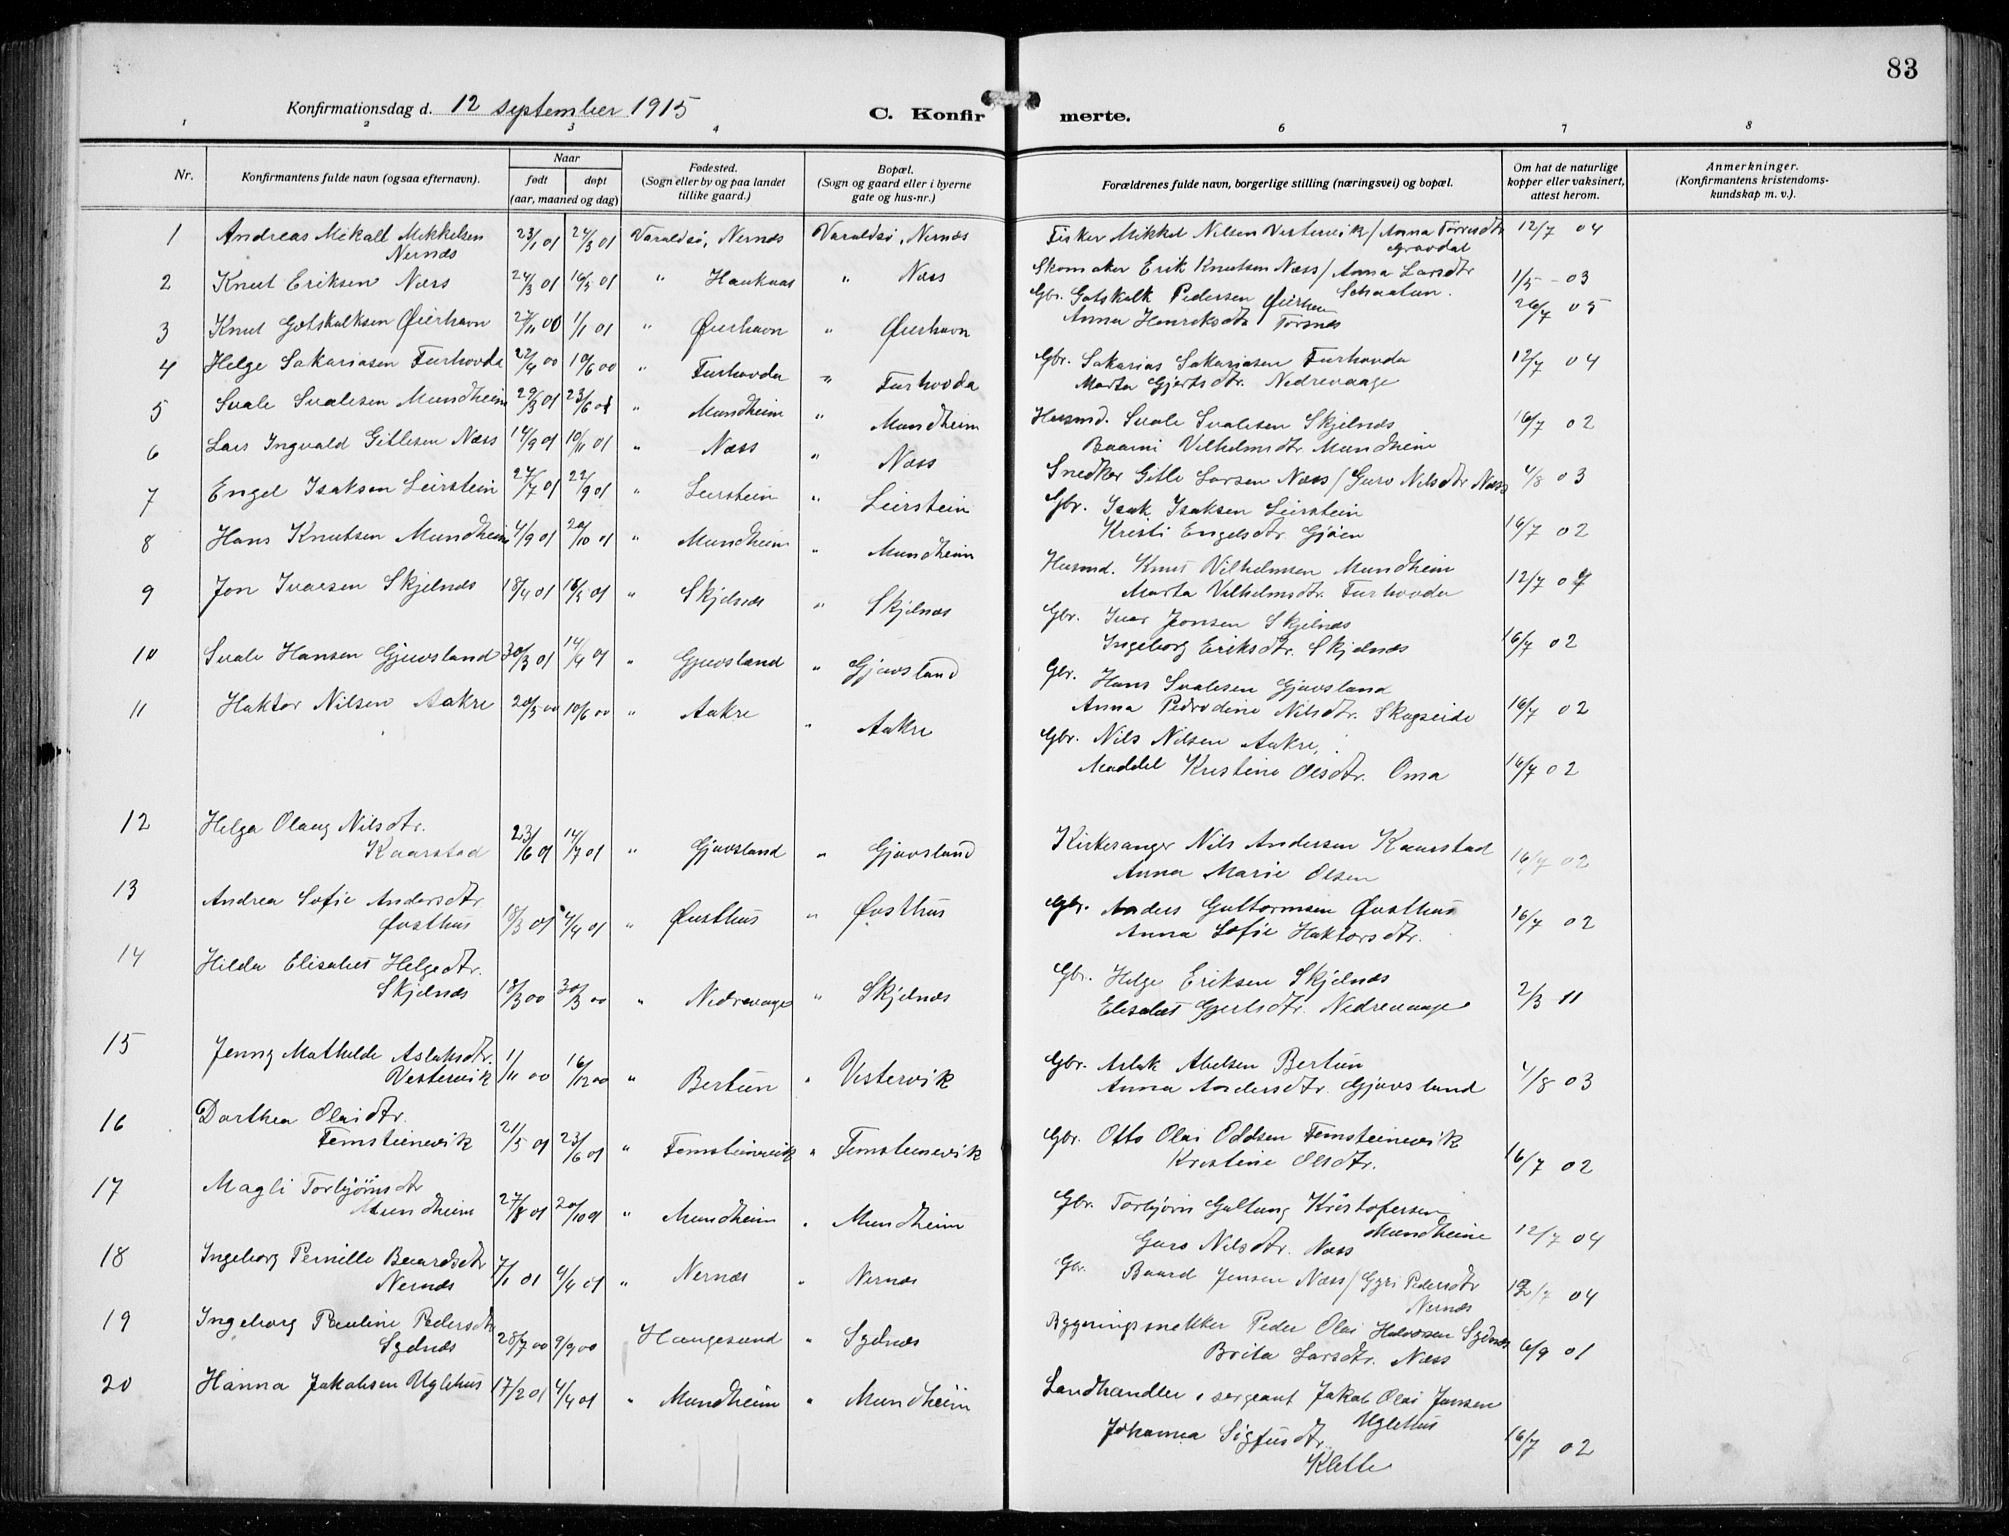 83
Konfirmationsdag d. 12 september 1915
C. Konfirmerte.
1 2 3 4 6 7 8
Nr.
Konfirmantens fulde navn (ogsaa efternavn).
Naar
født
døpt
(aar, maaned og dag)
Fødested.
(Sogn eller by og paa landet
tillike gaard.)
Bopæl.
(Sogn og gaard eller i byerne
gate og hus-nr.)
Forældrenes fulde navn, borgerlige stilling (næringsvei) og bopæl.
Om hat de naturlige
kopper eller vaksinert,
attest herom.
Anmerkninger.
(Konfirmantens kristendoms-
kundskap m. v.).
1 Andreas Mikall Mikkelsen 23/1 01 24/3 01 Varaldsø, Nernæs Varaldsø, Nernæs Fisker Mikkel Nilsen Vestervik / Anna Torresdtr 12/7 04
Nernæs Gravdal
2 Knut Eriksen Næss 24/3 01 16/5 01 " Hauknæs " Næss Skomaker Erik Knutsen Næss / Anna Larsdtr 1/5 - 03
Schaatun.
3 Knut Gotskalksen Øierhavn 27/11 00 1/1 01 " Øierhavn " Øierhavn Gbr. Gotskalk Pedersen Øierhavn 26/7 05
Anna Henriksdtr Torsnes
4 Helge Sakariasen Furhovda 22/4 00 10/6 00 " Furhovda " Furhovda Gbr. Sakarias Sakariasen Furhovda 12/7 04
Marta Gjertsdtr. Nedrevaage
5 Svale Svalesen Mundheim 29/3 01 23/6 01 " Mundheim " Mundheim Husmd. Svale Svalesen Skjelnæs 16/7 02
Baarni Vilhelmsdtr. Mundheim
6 Lars Ingvald Gitlesen Næss 14/9 01 10/11 01 " Næss " Næss Snedker Gitle Larsen Næss / Guro Nilsdtr Næss 4/8 03
7 Engel Isaksen Leirstein 27/7 01 22/9 01 " Leirstein " Leirstein Gbr. Isak Isaksen Leirstein
Kristi Engelsdtr. Gjøen 16/7 02
8 Hans Knutsen Mundheim 4/9 01 20/10 01 " Mundheim " Mundheim Husmd. Knut Vilhelmsen Mundheim 12/7 04
Marta Vilhelmsdtr. Furhovda
9 Jon Ivarsen Skjelnæs 18/4 01 16/5 01 " Skjelnæs " Skjelnæs Gbr. Ivar Jonsen Skjelnæs
Ingeborg Eriksdtr. Skjelnæs 16/7 02
10 Svale Hansen Gjuvsland 30/3 01 14/4 01 " Gjuvsland " Gjuvsland Gbr. Hans Svalesen Gjuvsland
Anna Pedrodine Nilsdtr. Skogseide 16/7 02
11 Haktor Nilsen Aakre 20/5 00 10/6 00 " Aakre " Aakre Gbr. Nils Nilsen Aakre,
Maddel Kristine Olsdtr. Oma 16/7 02
12 Helga Olaug Nilsdtr.
Kaarstad 23/6 01 14/7 01 " Gjuvsland " Gjuvsland Kirkesanger Nils Andersen Kaarstad 16/7 02
Anna Marie Olsen
13 Andrea Sofie Andersdtr.
Øvsthus 18/3 01 4/4 01 " Øvsthus " Øvsthus Gbr. Anders Guttormsen Øvsthus 16/7 02
Anna Sofie Haktorsdtr.
14 Hilda Elisabet Helgedtr.
Skjelnæs 18/3 00 30/3 00 " Nedrevaage " Skjelnæs Gbr. Helge Eriksen Skjelnæs 2/3 11
Elisabet Gjertsdtr. Nedrevaage
15 Jenny Mathilde Aslaksdtr.
Vestervik 1/11 00 16/12 00 " Bertun " Vestervik Gbr. Aslak Abelsen Bertun 4/8 03
Anna Andersdtr. Gjuvsland
16 Dorthea Olaidtr.
Femsteinevik 21/5 01 23/6 01 " Femsteinevik " Femsteinevik Gbr. Otto Olai Oddsen Femsteinevik
Kristine Olsdtr. 16/7 02
17 Magli Torbjørnsdtr
Mundheim 27/8 01 20/10 01 " Mundheim " Mundheim Gbr. Torbjørn Galtung Kristofersen
Mundheim 12/7 04
Guro Nilsdtr. Næss
18 Ingeborg Pernille Baardsdtr
Nernæs 7/1 01 4/4 01 " Nernæs " Nernæs Gbr. Baard Jensen Næss / Gyri Pedersdtr 12/7 04
Nernæs
19 Ingeborg Pauline Pedersdtr
Sydnæs 28/7 00 9/9 00 Haugesund " Sydnæs Bygningssnekker Peder Olai Halvorsen Sydnæs 6/9 01
Brita Larsdtr. Næss
20 Hanna Jakobsen Uglehus 17/2 01 4/4 01 " Mundheim " Mundheim Landhandler, sergeant Jakob Olai Jansen
Uglehus
Johanna Sigfusdtr. 16/7 02
Klette